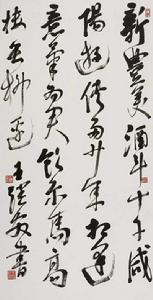 新豐美酒斗十千咸
陽遊俠多少年相逢
意氣為君飲系馬高
樓垂柳邊
書